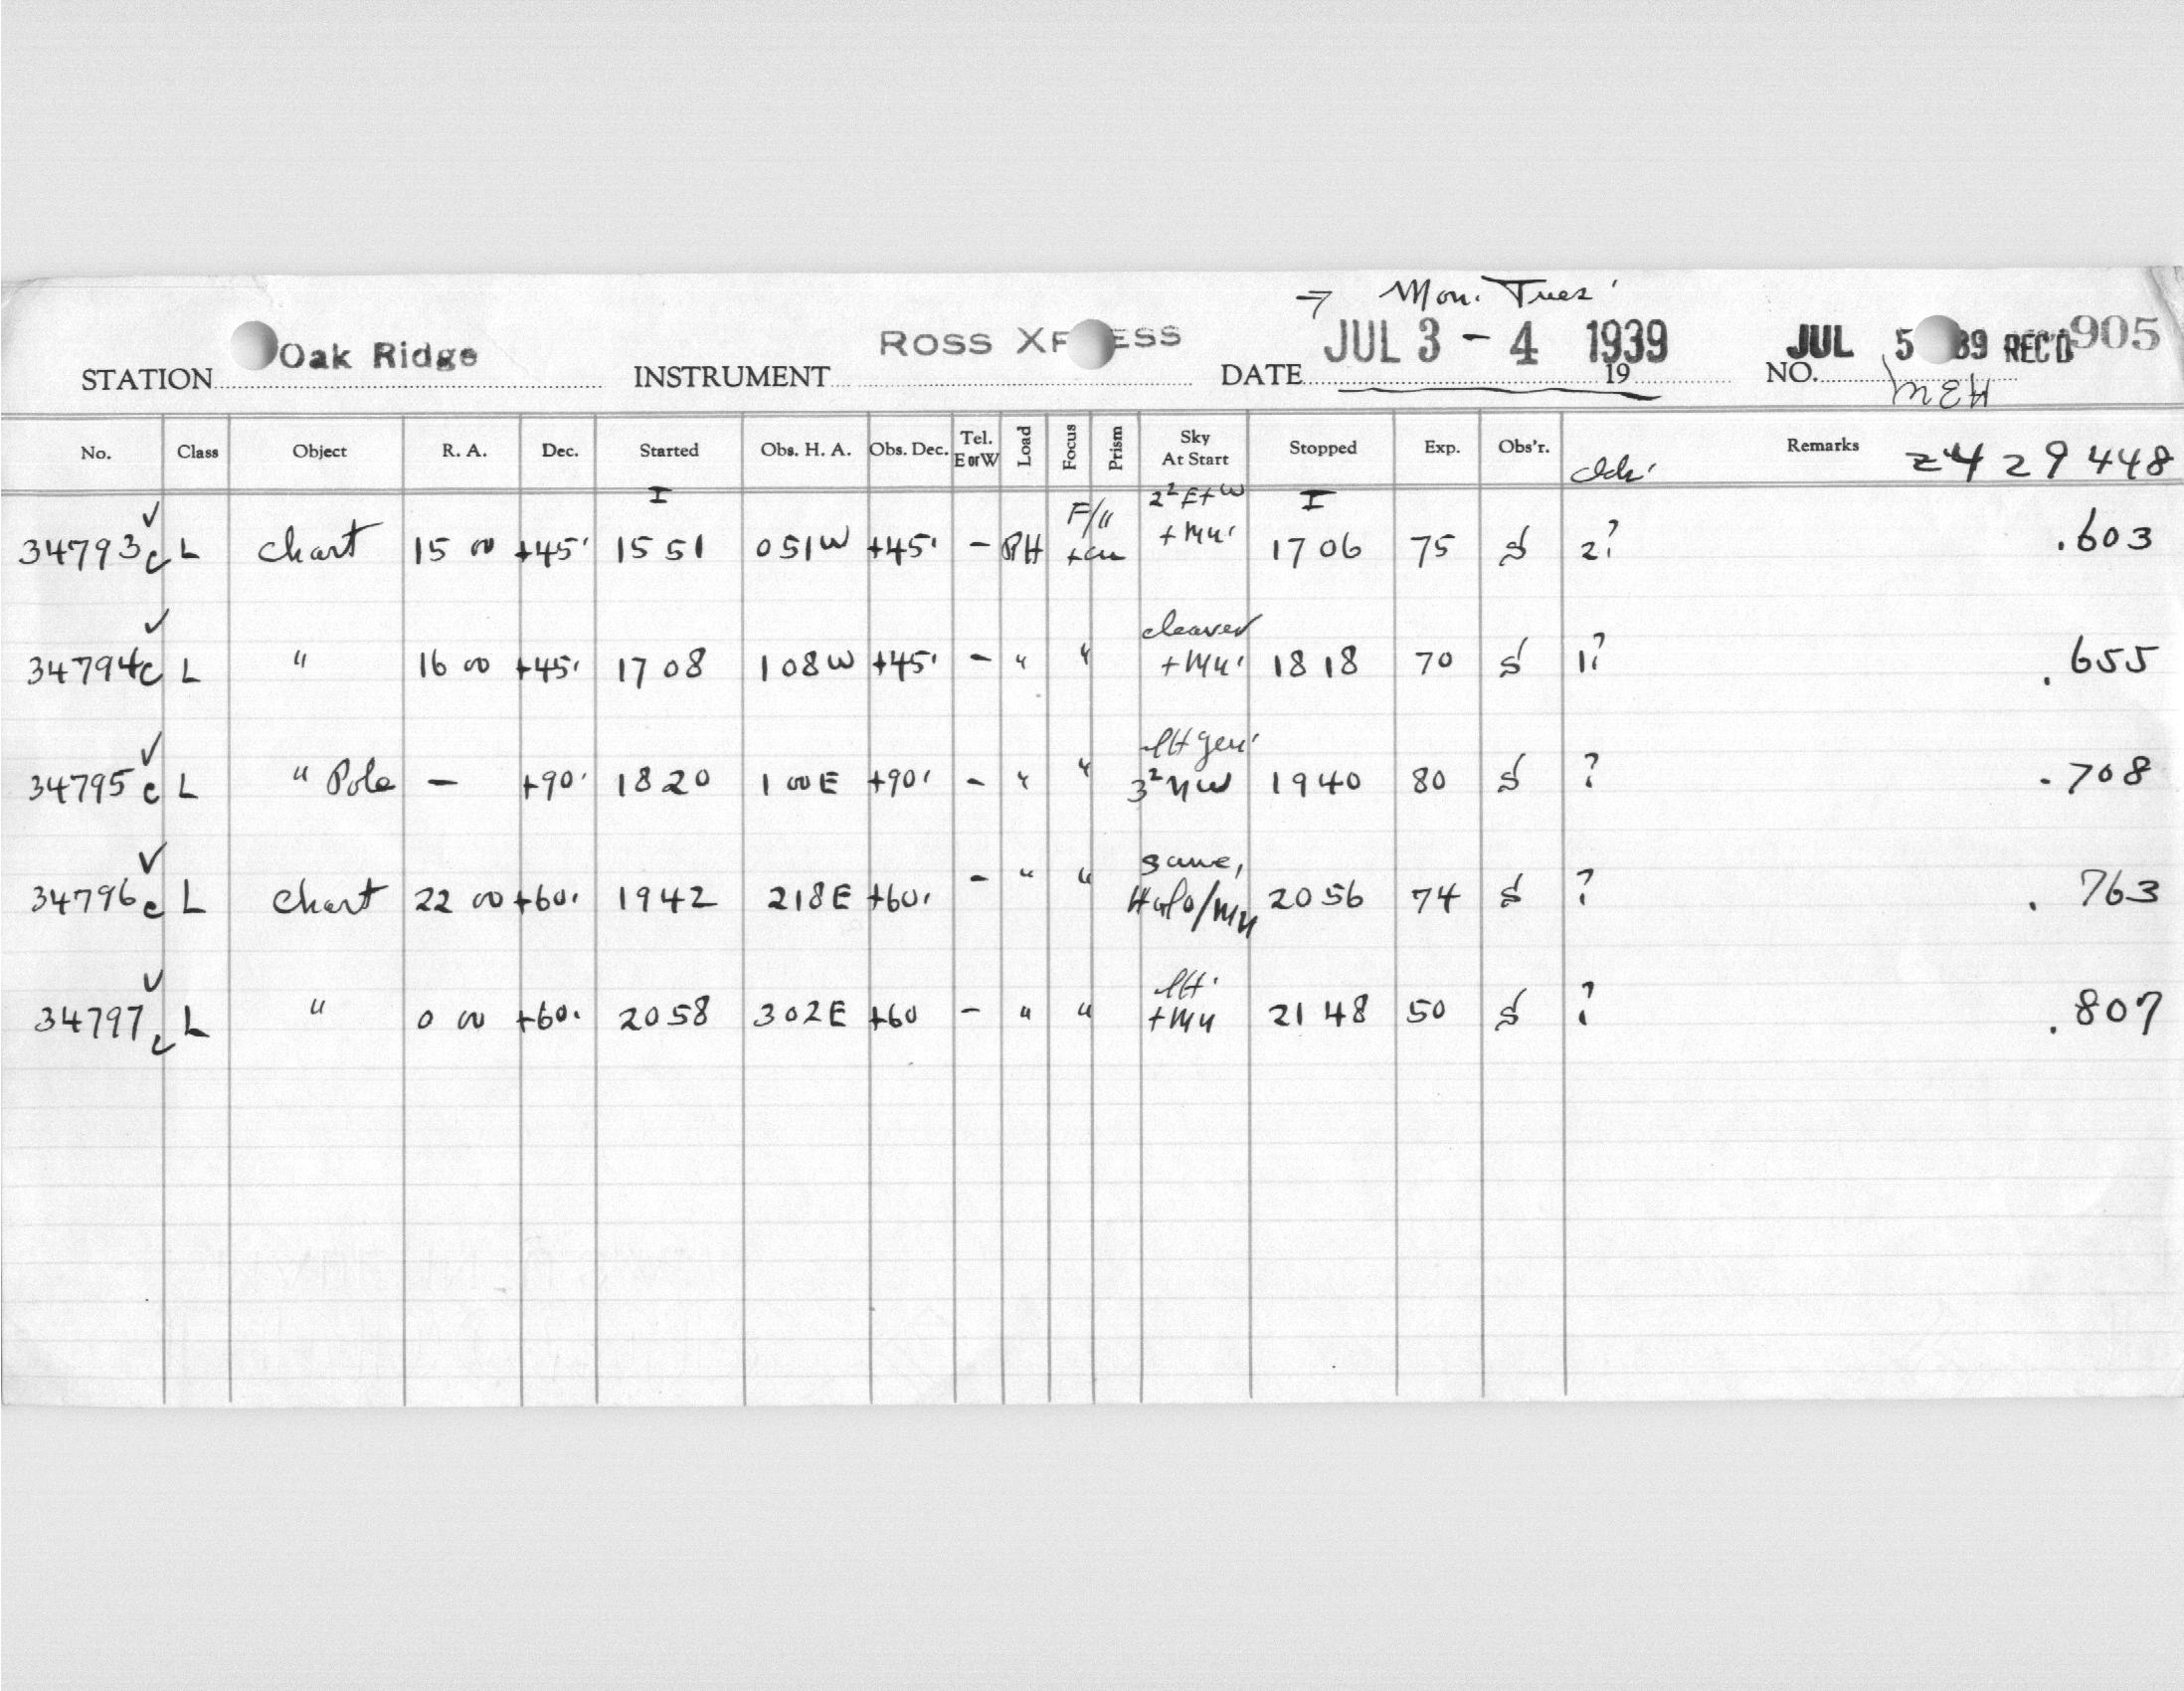 → Mon. Tues'
STATION Oak Ridge INSTRUMENT ROSS XPRESS DATE JUL 3 - 4 1939 19 NO. JUL 5 39 REC'D 905
MEH
No. Class Object R. A. Dec. Started Obs. H. A. Obs. Dec. Tel. E or W Load Focus Prism Sky At Start Stopped Exp. Obs'r. Remarks 2429448
I 2² E+W I
34793c L Chart 15 00 +45' 15 51 0 51W +45' - PH F/ +Mn' 17 06 75 S 2? .603
cleaner
34794c L " 16 00 +45' 17 08 1 08W +45' - " " +Mn' 18 18 70 S 1? .655
34795c L " Pole - +90' 18 20 1 00E +90' - " " 3² NW 19 40 80 S ? .708
same,
34796c L Chart 22 00 +60' 19 42 2 18E +60' - " " Halo/Mn 20 56 74 S ? .763
34797c L " 0 00 +60' 20 58 3 02E +60 - " " +Mn 21 48 50 S ? .807